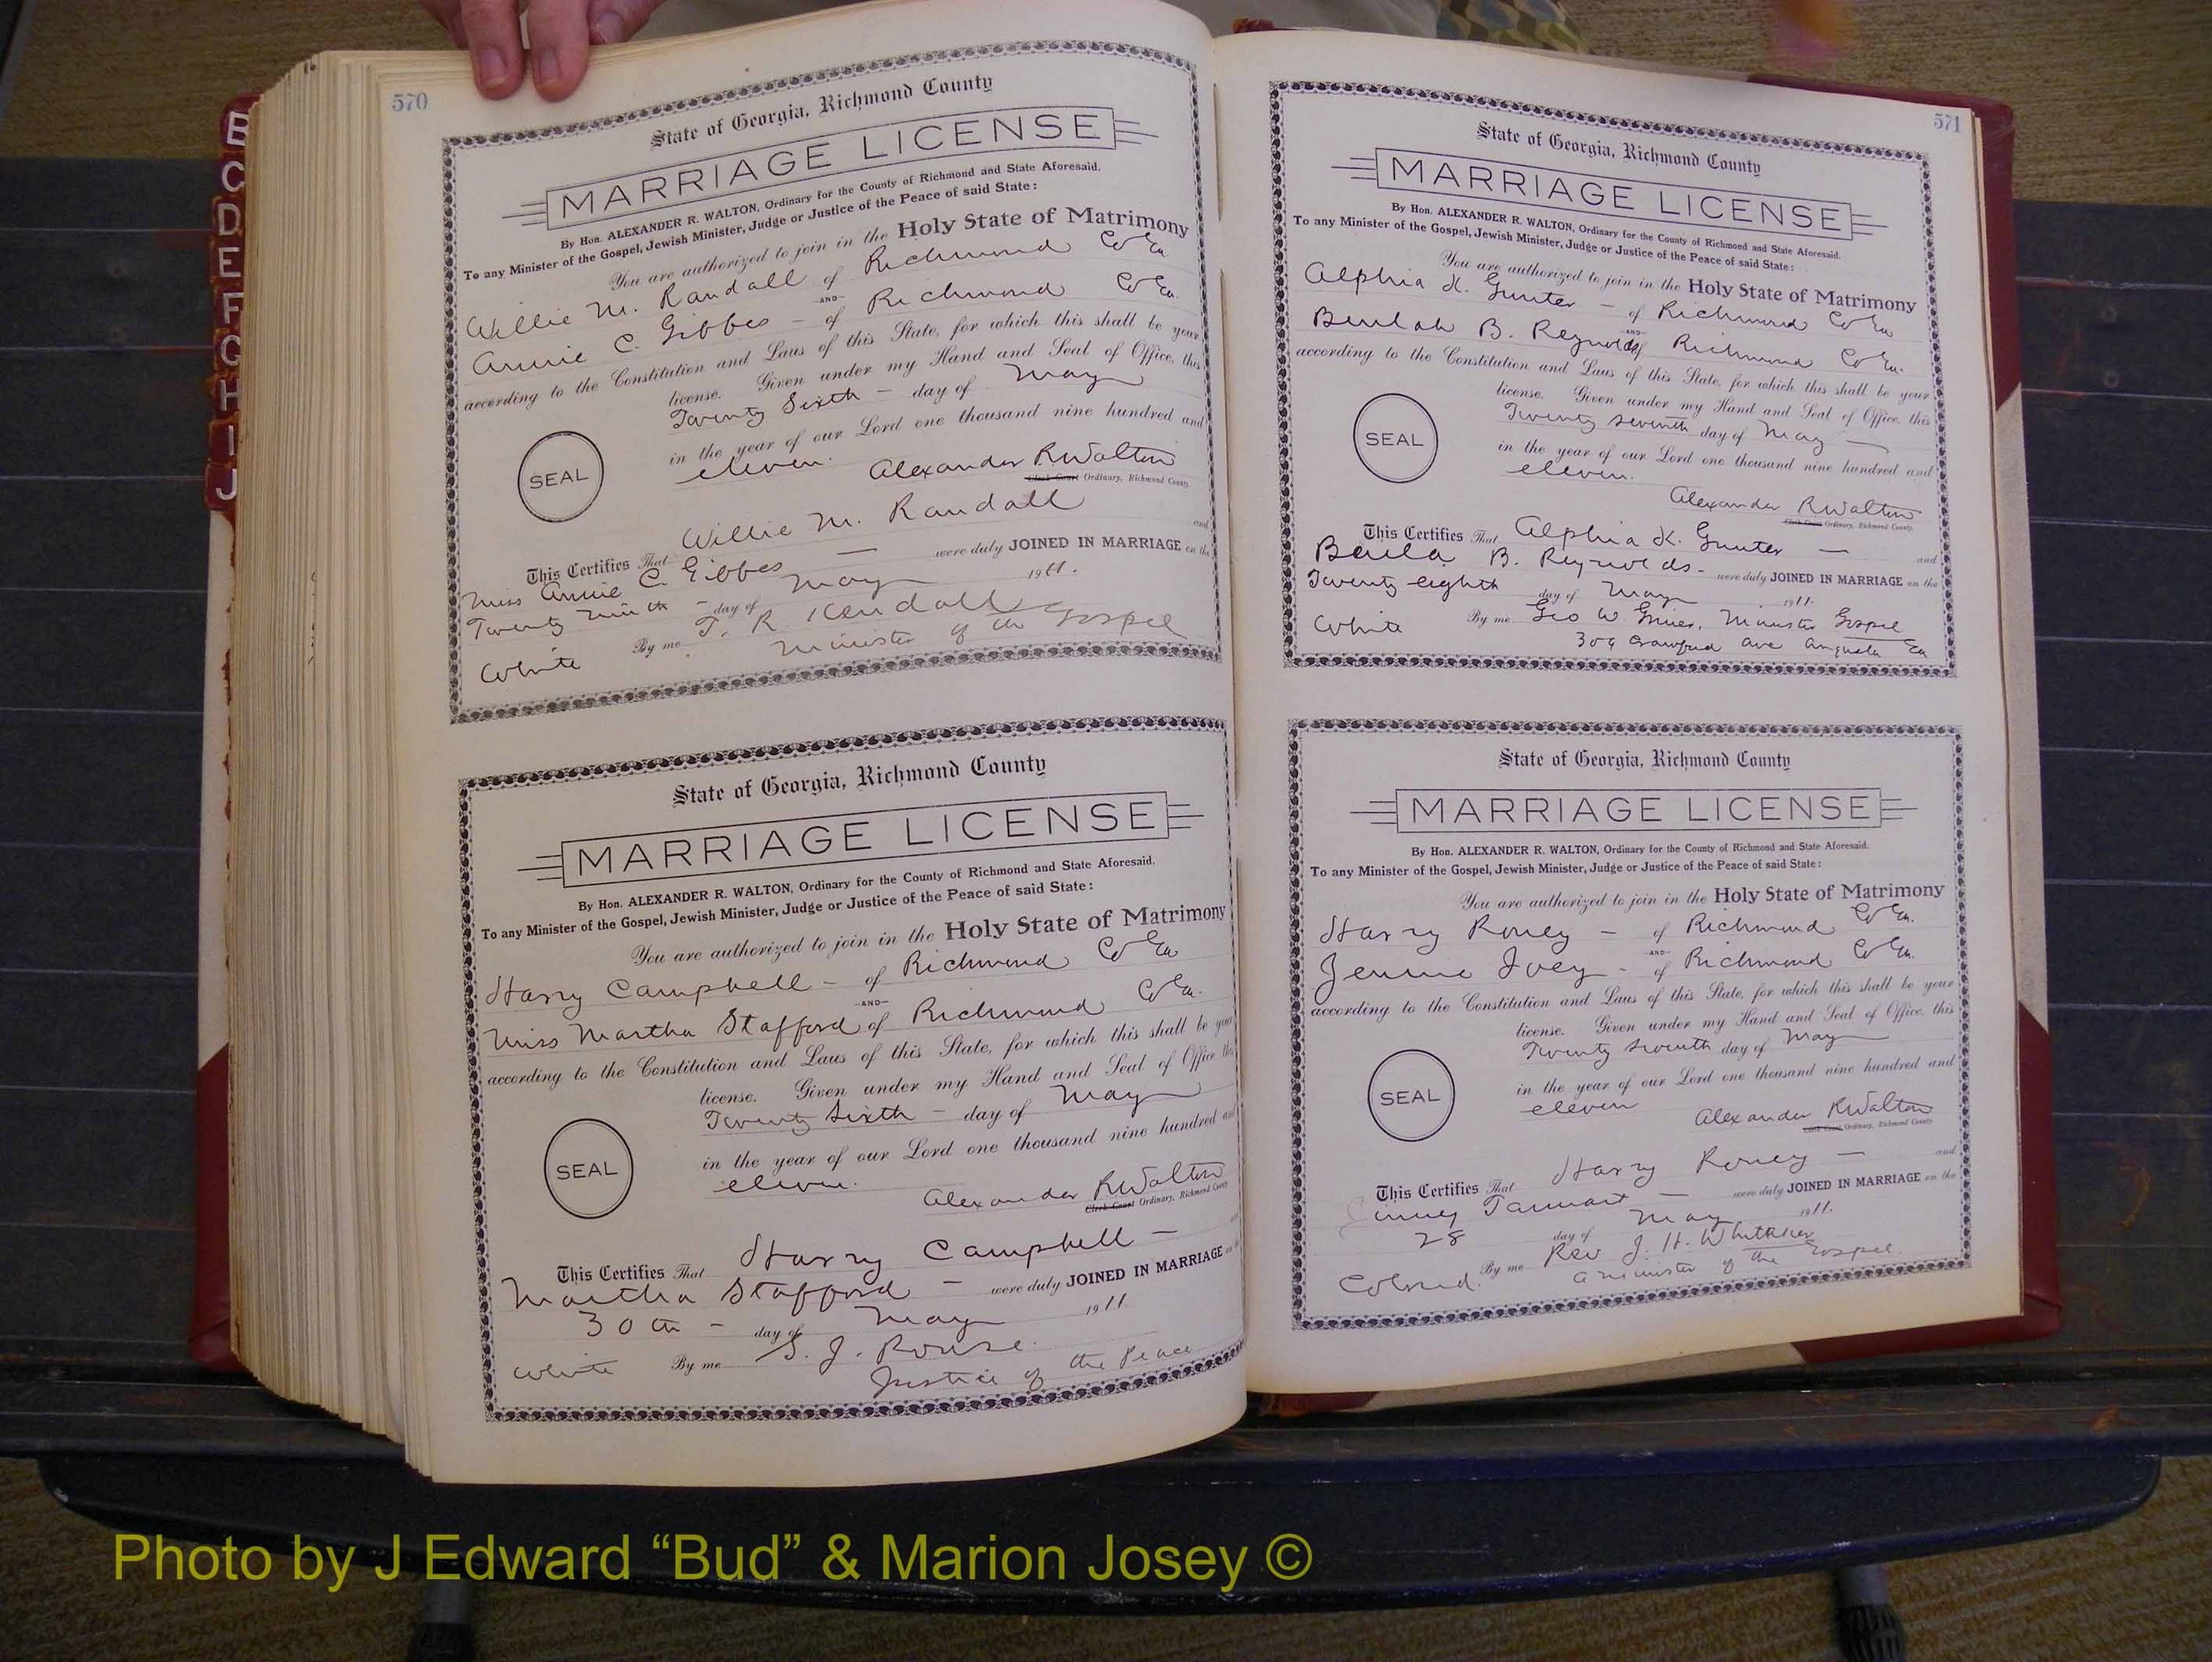 B
C
D
E
F
G
H
I
J
570
State of Georgia, Richmond County
MARRIAGE LICENSE
By Hon. ALEXANDER R. WALTON, Ordinary for the County of Richmond and State Aforesaid.
To any Minister of the Gospel, Jewish Minister, Judge or Justice of the Peace of said State:
You are authorized to join in the Holy State of Matrimony
Willie M. Randall of Richmond Co Ga.
-AND-
Annie C. Gibbes - of Richmond Co Ga.
according to the Constitution and Laws of this State, for which this shall be your
license. Given under my Hand and Seal of Office, this
Twenty Sixth - day of May
in the year of our Lord one thousand nine hundred and
eleven.
SEAL
Alexander R Walton
Clerk Court Ordinary, Richmond County.
This Certifies That Willie M. Randall and
Miss Annie C. Gibbes - were duly JOINED IN MARRIAGE on the
Twenty ninth - day of May 1911.
By me T. R. Kendall
Minister of the Gospel
White
State of Georgia, Richmond County
MARRIAGE LICENSE
By Hon. ALEXANDER R. WALTON, Ordinary for the County of Richmond and State Aforesaid.
To any Minister of the Gospel, Jewish Minister, Judge or Justice of the Peace of said State:
You are authorized to join in the Holy State of Matrimony
Harry Campbell - of Richmond Co Ga
-AND-
Miss Martha Stafford of Richmond Co Ga.
according to the Constitution and Laws of this State, for which this shall be your
license. Given under my Hand and Seal of Office this
Twenty Sixth - day of May
in the year of our Lord one thousand nine hundred and
eleven.
SEAL
Alexander R Walton
Clerk Court Ordinary, Richmond County
This Certifies That Harry Campbell -
Martha Stafford - were duly JOINED IN MARRIAGE on the
30th - day of May 1911.
White By me S. J. Rouse.
Justice of the Peace
571
State of Georgia, Richmond County
MARRIAGE LICENSE
By Hon. ALEXANDER R. WALTON, Ordinary for the County of Richmond and State Aforesaid.
To any Minister of the Gospel, Jewish Minister, Judge or Justice of the Peace of said State:
You are authorized to join in the Holy State of Matrimony
Alphia K. Gunter - of Richmond Co Ga
-AND-
Beulah B. Reynolds of Richmond Co Ga.
according to the Constitution and Laws of this State, for which this shall be your
license. Given under my Hand and Seal of Office, this
Twenty Seventh day of May -
in the year of our Lord one thousand nine hundred and
eleven.
SEAL
Alexander R Walton
Clerk Court Ordinary, Richmond County.
This Certifies That Alphia K. Gunter - and
Beula B. Reynolds - were duly JOINED IN MARRIAGE on the
Twenty eighth day of May 1911.
White By me Geo W. Minister Gospel
309 Crawford Ave Augusta Ga
State of Georgia, Richmond County
MARRIAGE LICENSE
By Hon. ALEXANDER R. WALTON, Ordinary for the County of Richmond and State Aforesaid.
To any Minister of the Gospel, Jewish Minister, Judge or Justice of the Peace of said State:
You are authorized to join in the Holy State of Matrimony
Harry Roney - of Richmond Co Ga.
-AND-
Jennie Ivey - of Richmond Co Ga.
according to the Constitution and Laws of this State, for which this shall be your
license. Given under my Hand and Seal of Office, this
Twenty Seventh day of May
in the year of our Lord one thousand nine hundred and
eleven
SEAL
Alexander R Walton
Clerk Court Ordinary, Richmond County
This Certifies That Harry Roney - and
- were duly JOINED IN MARRIAGE on the
28 day of May 1911.
By me Rev J. H. Whittaker
Colored. a minister of the Gospel.
Photo by J Edward “Bud” & Marion Josey ©